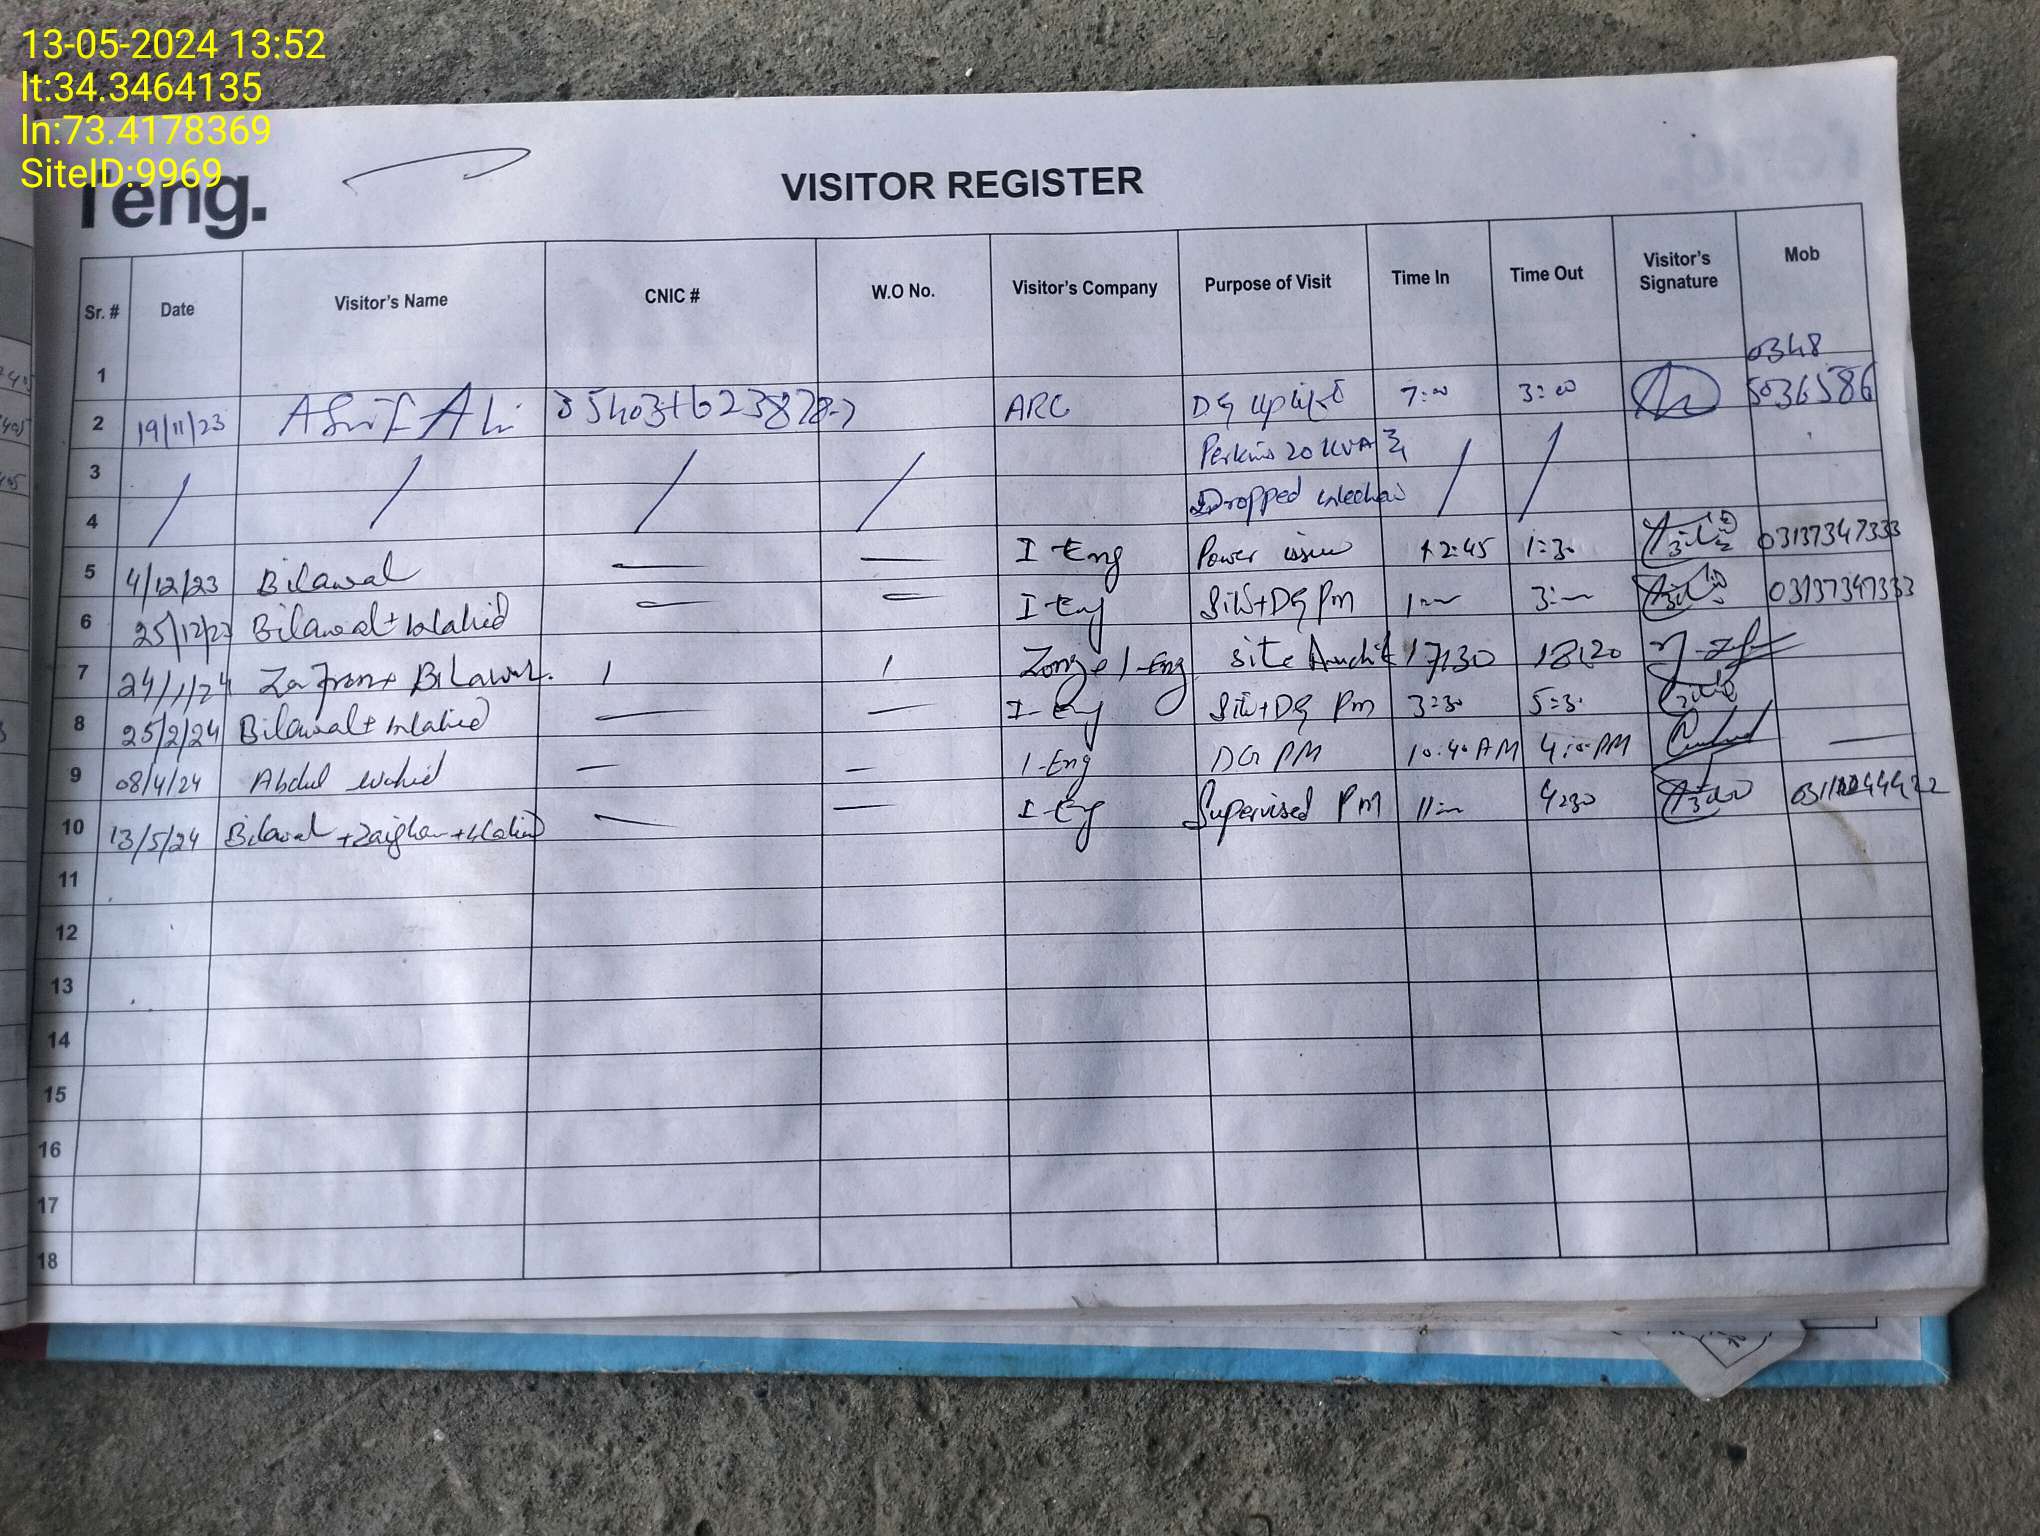 13-05-2024 13:52
lt:34.3464135
ln:73.4178369
SiteID:9969
Ieng.
VISITOR REGISTER
Sr. # Date Visitor's Name CNIC # W.O No. Visitor's Company Purpose of Visit Time In Time Out Visitor's Signature Mob
1 0348
2 19/11/23 Ali ARC DG uplift 7:00 3:00 5036586
3 Perkins 20 KVA
4 Dropped
5 4/12/23 Bilawal — — I-Eng Power issue 12:45 1:30 03137347333
6 25/12/23 Bilawal + Wahid — — I-Eng Site+DG PM 1:— 3:— 03137347333
7 24/1/24 Bilawal. / / Zong + I-Eng Site Audit 17:30 18:20
8 25/2/24 Bilawal + Wahid — — I-Eng Site+DG PM 3:30 5:30
9 08/4/24 Abdul Wahid — — I-Eng DG PM 10:40 AM 4:10 PM —
10 13/5/24 Bilawal + Zaigham + Wahid — — I-Eng Supervised PM 11:— 4:30
11
12
13
14
15
16
17
18